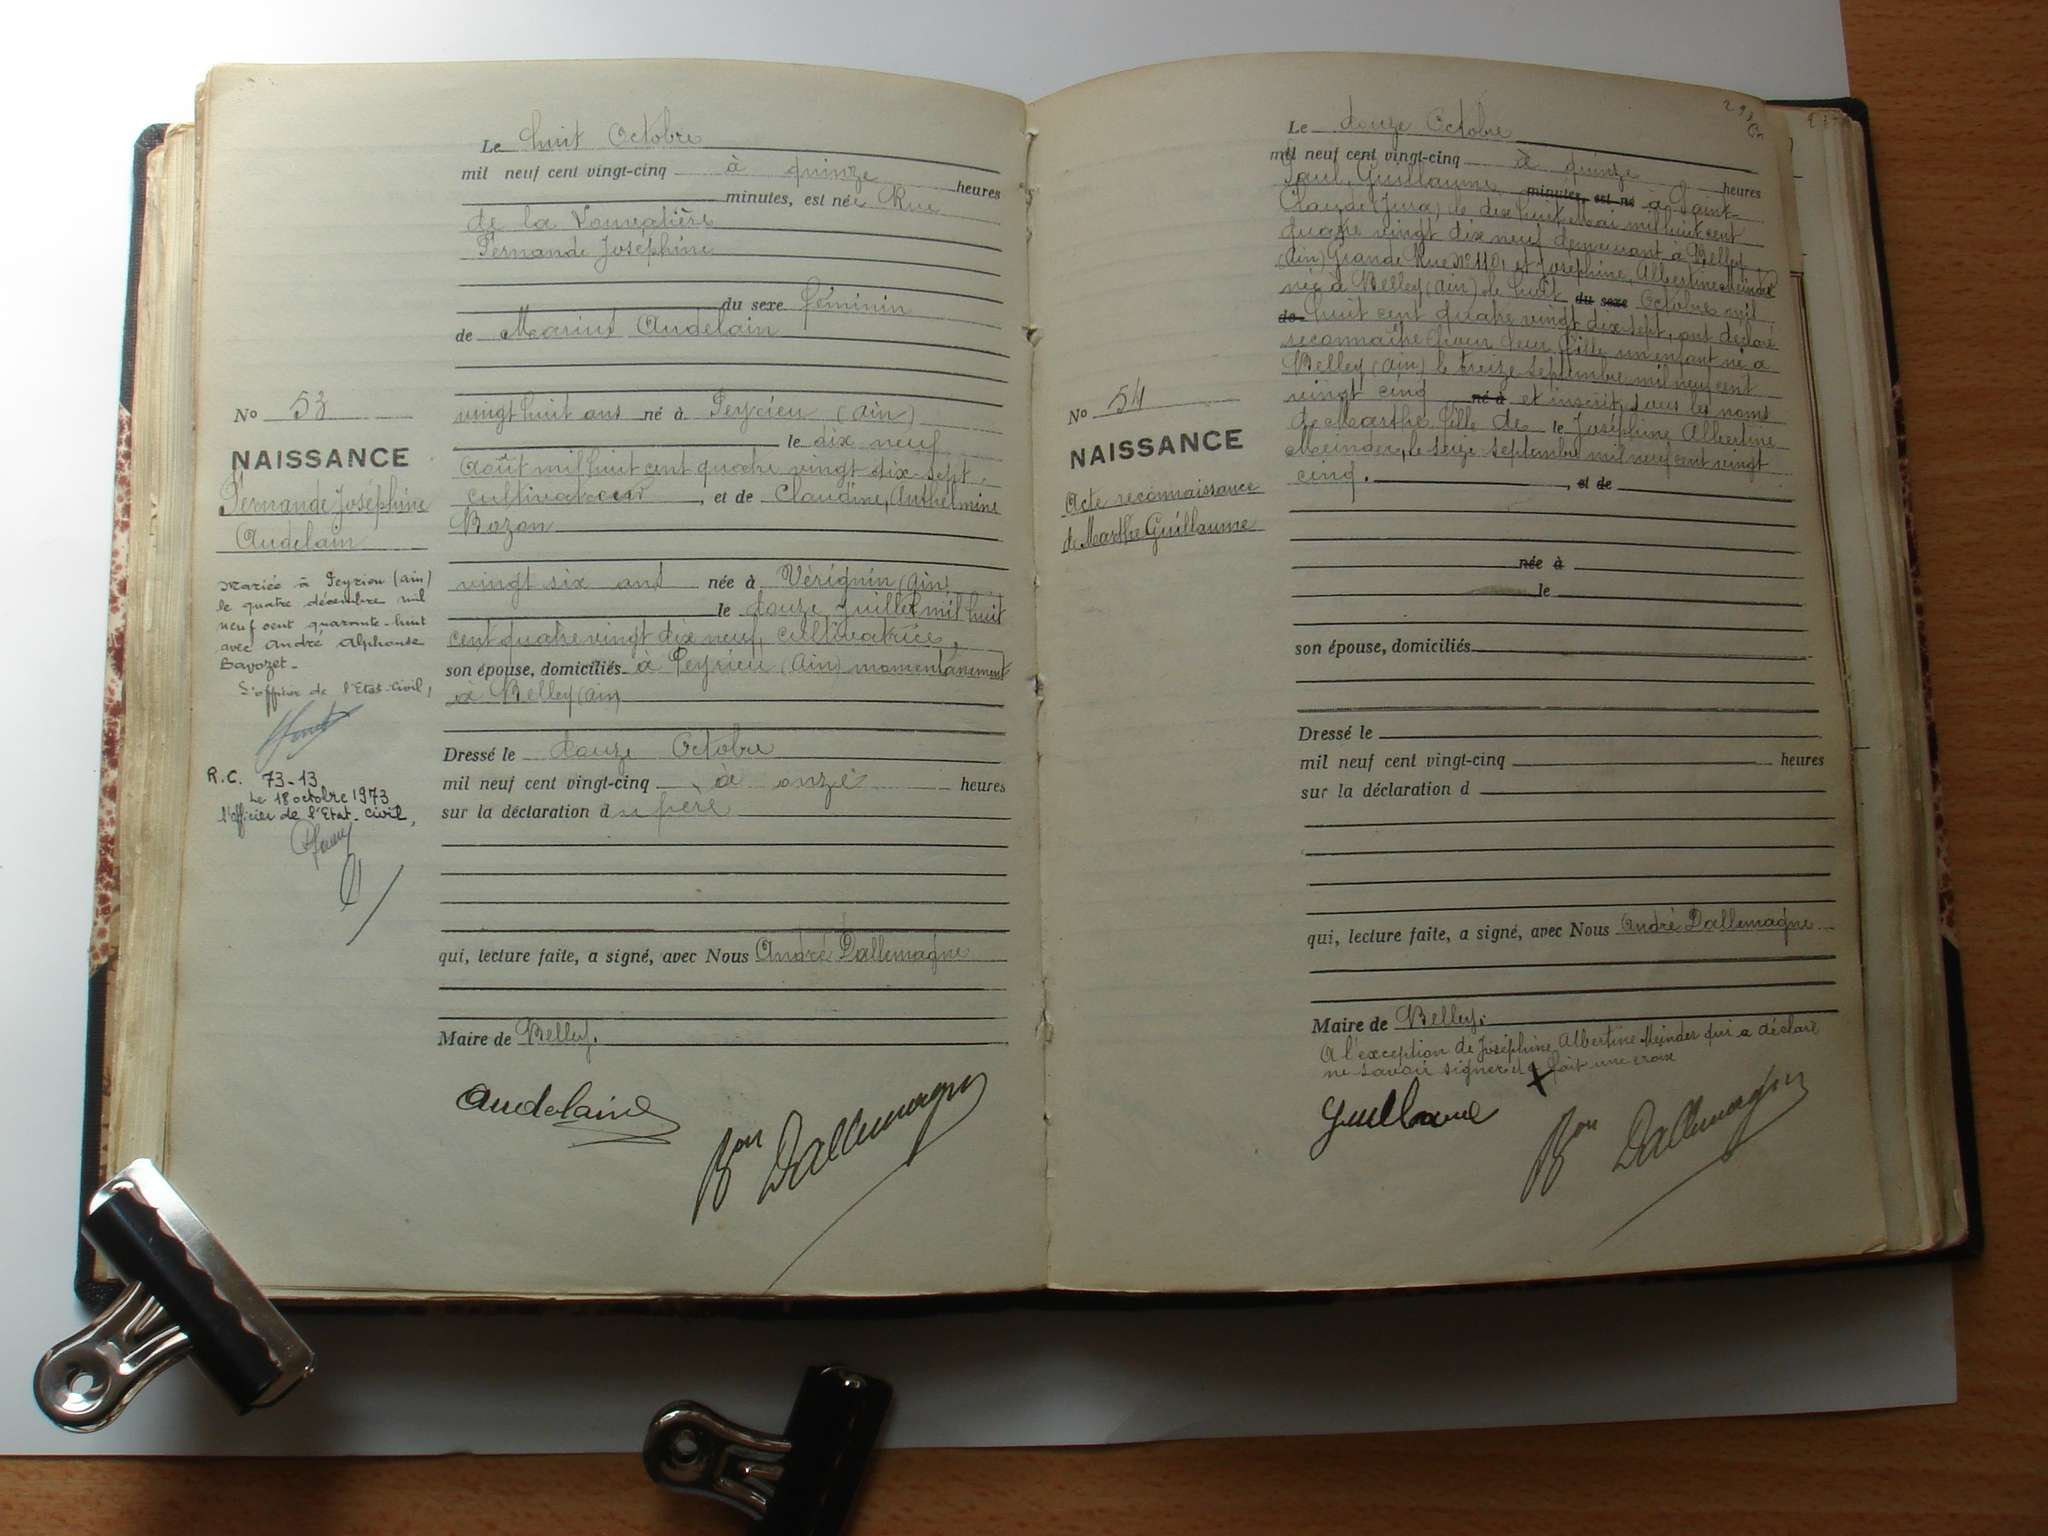 Le huit Octobre
mil neuf cent vingt-cinq à quinze heures
minutes, est née Rue
de la
Fernande Joséphine
du sexe féminin
de Marius Audelain
No 53
vingt huit ans né à Peyrieu (Ain)
le dix neuf
NAISSANCE
Août mil huit cent quatre vingt dix-sept,
Fernande Joséphine
cultivateur, et de Claudine, Anthelmine
Audelain
Bozon
Mariée à Peyrieu (Ain)
le quatre décembre mil
neuf cent quarante-huit
avec André Alphonse
Bavozet.
L'officier de l'Etat-Civil,
R.C. 73-13
Le 18 octobre 1973
l'officier de l'Etat-civil,
vingt six ans née à Vérignin (Ain)
le douze juillet mil huit
cent quatre vingt dix neuf, cultivatrice,
son épouse, domiciliés à Peyrieu (Ain) momentanément
à Belley (Ain)
Dressé le douze Octobre
mil neuf cent vingt-cinq à onze heures
sur la déclaration du père
qui, lecture faite, a signé, avec Nous André Dallemagne
Maire de Belley.
Audelain
Bon Dallemagne
Le douze Octobre
mil neuf cent vingt-cinq à quinze heures
Paul, Guillaume minutes, est né à Saint-
Claude (Jura) le dix huit mai mil huit cent
quatre vingt dix neuf demeurant à Belley
(Ain) Grande Rue No 110, et Joséphine, Albertine Meinder
née à Belley (Ain) le huit du sexe Octobre mil
de huit cent quatre vingt dix sept, ont déclaré
reconnaître pour leur fille un enfant né à
Belley (Ain) le treize septembre mil neuf cent
vingt cinq né à et inscrit sous les noms
de Marthe fille de le Joséphine Albertine
Meinder, le seize septembre mil neuf cent vingt
cinq. , et de
No 54
NAISSANCE
Acte reconnaissance
de Marthe Guillaume
née à
le
son épouse, domiciliés
Dressé le
mil neuf cent vingt-cinq heures
sur la déclaration d
qui, lecture faite, a signé, avec Nous André Dallemagne
Maire de Belley.
A l'exception de Joséphine Albertine Meinder qui a déclaré
ne savoir signer et a fait une croix
Guillaume
Bon Dallemagne